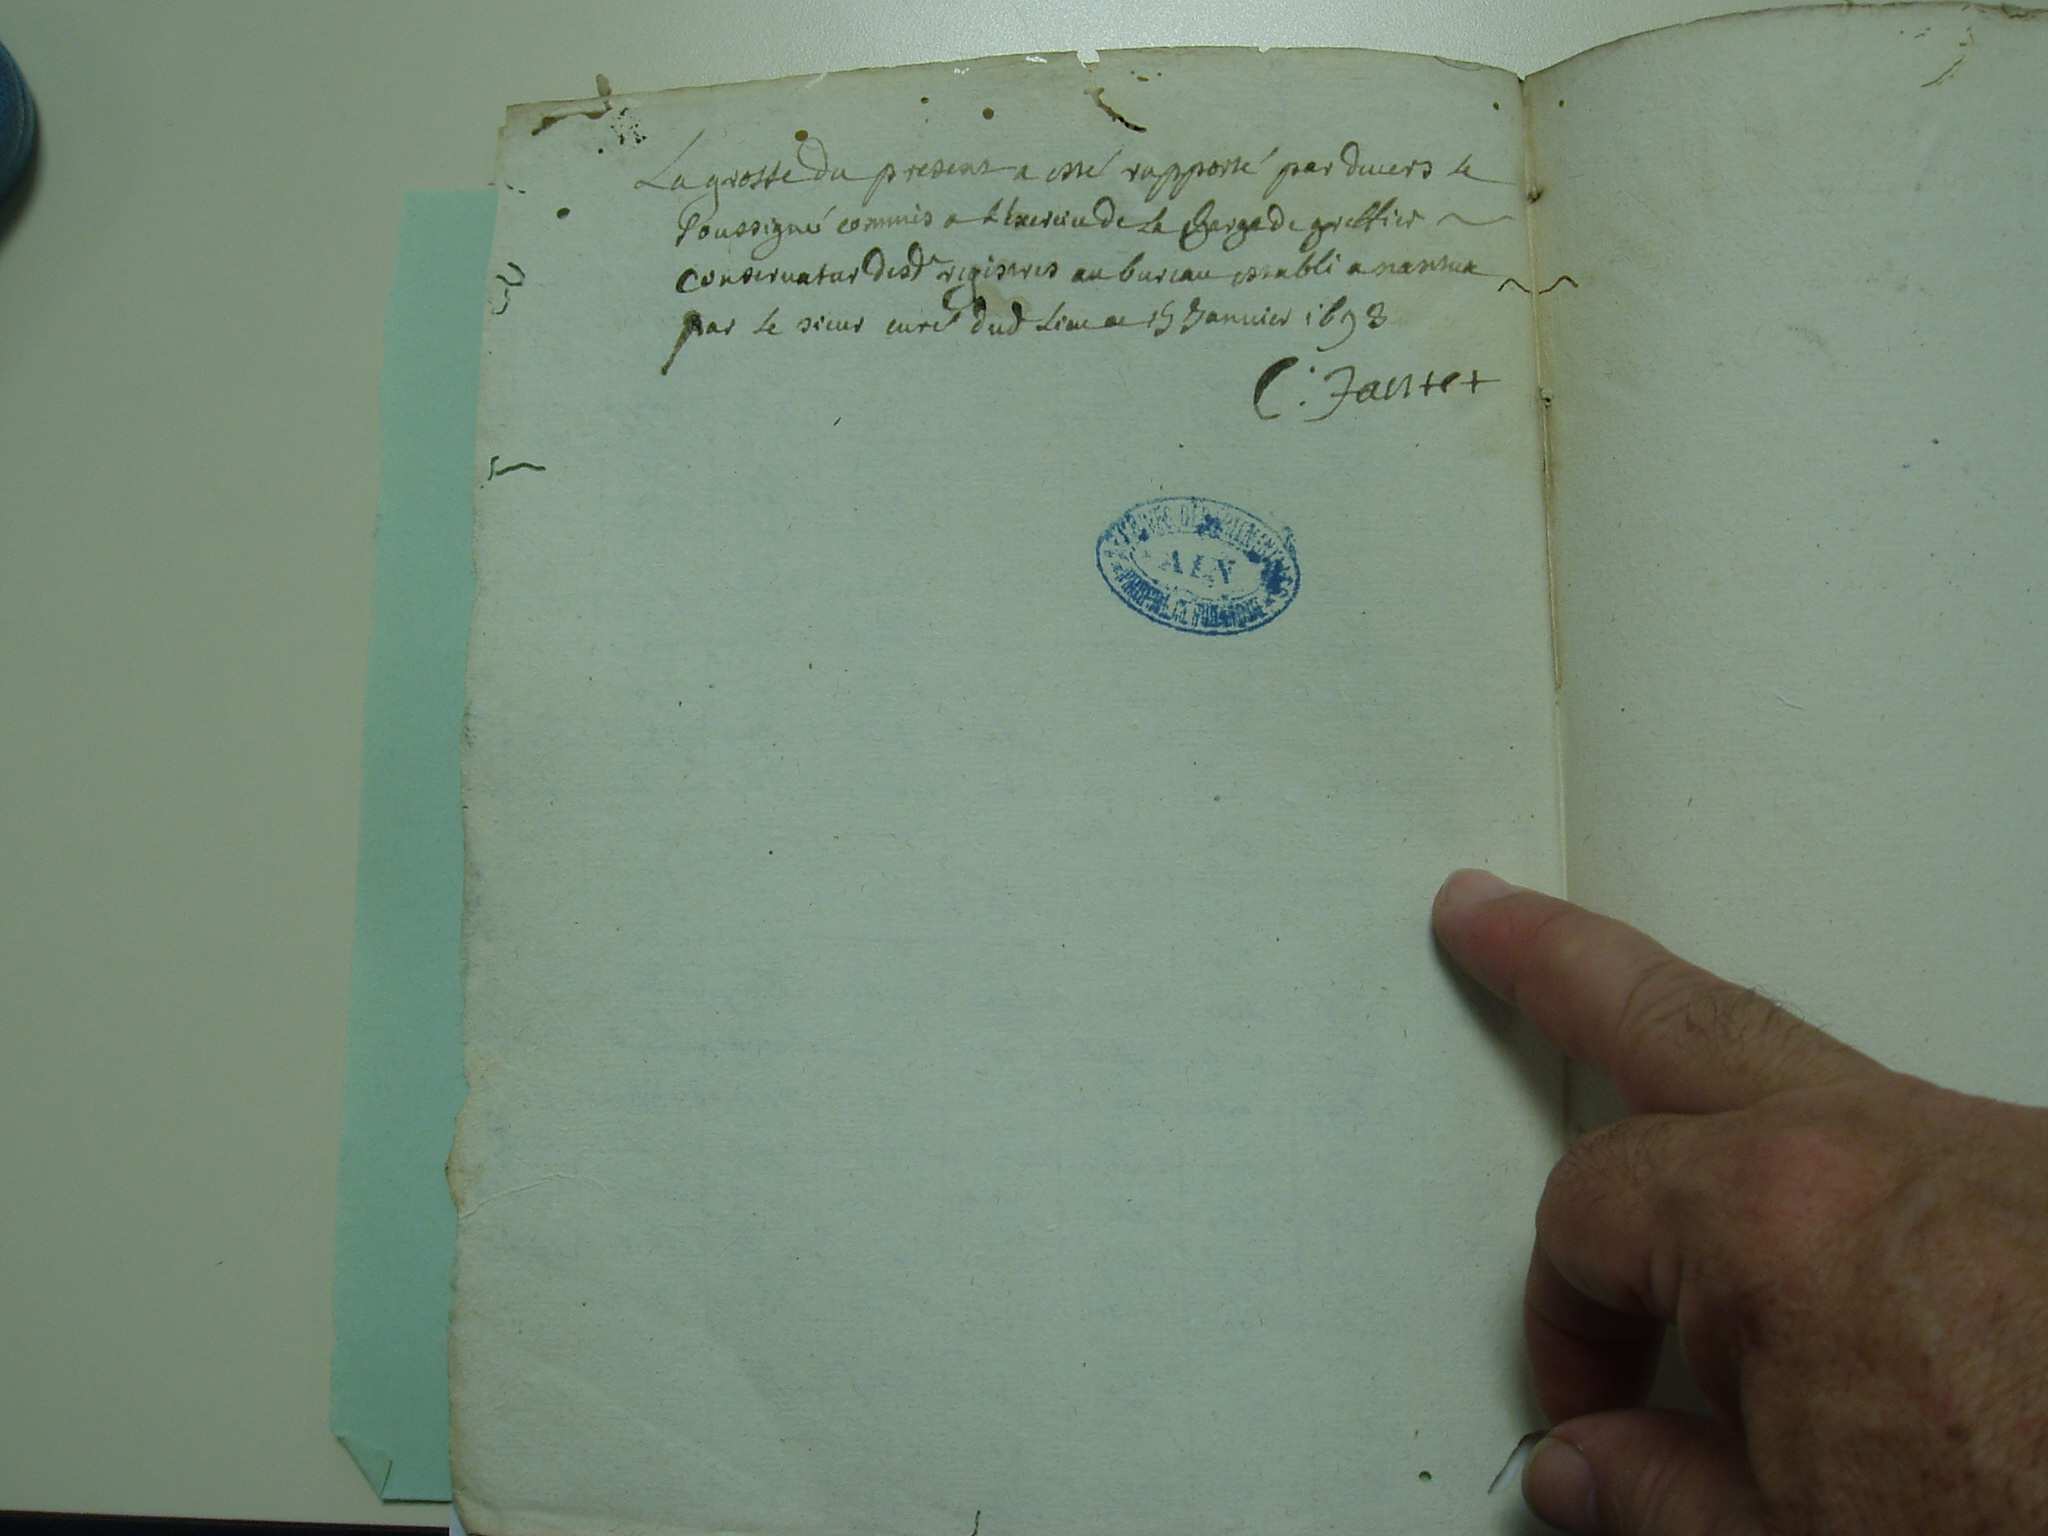 La grosse du present a esté rapporté par devers le
soussigné commis a l'exercice de la charge de greffier
conservateur desd. registres au bureau establi a nantua
par le sieur curé dud lieu ce 15 Janvier 1698
C: Jantet
ARCHIVES DEPARTEMENTALES
AIN
PROPRIÉTÉ PUBLIQUE